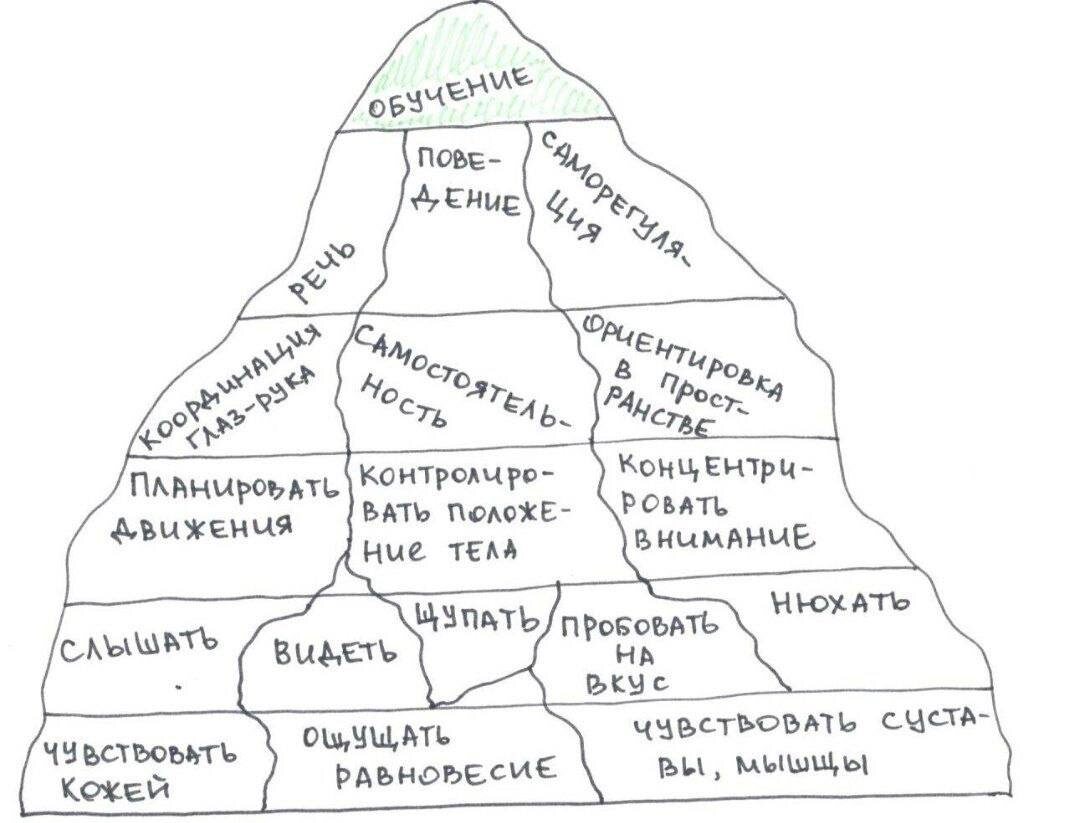 ОБУЧЕНИЕ
РЕЧЬ
ПОВЕ-
ДЕНИЕ
САМОРЕГУЛЯ-
ЦИЯ
КООРДИНАЦИЯ
ГЛАЗ-РУКА
САМОСТОЯТЕЛЬ-
НОСТЬ
ОРИЕНТИРОВКА
В ПРОСТ-
РАНСТВЕ
ПЛАНИРОВАТЬ
ДВИЖЕНИЯ
КОНТРОЛИРО-
ВАТЬ ПОЛОЖЕ-
НИЕ ТЕЛА
КОНЦЕНТРИ-
РОВАТЬ
ВНИМАНИЕ
СЛЫШАТЬ
ВИДЕТЬ
ЩУПАТЬ
ПРОБОВАТЬ
НА
ВКУС
НЮХАТЬ
ЧУВСТВОВАТЬ
КОЖЕЙ
ОЩУЩАТЬ
РАВНОВЕСИЕ
ЧУВСТВОВАТЬ СУСТА-
ВЫ, МЫШЦЫ